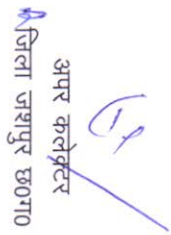 अपर कलेक्टर
जिला जशपुर छ0ग0